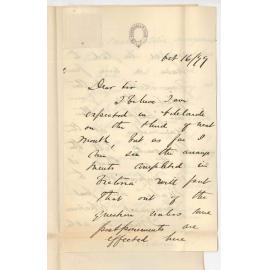 Oct 16/79
Dear Sir
I believe I am
expected in Adelaide
on the third of next
month, but as far I
can see the arrange
ments completed in
Victoria will put
that out of the
question unless some
postponements are
effected here